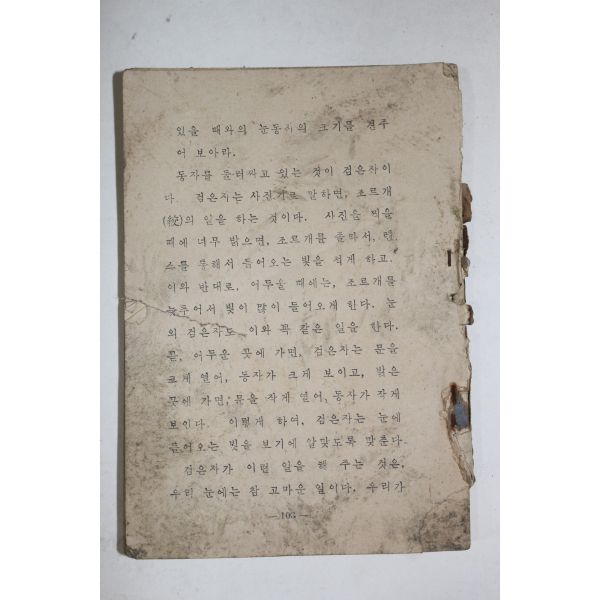 있을 때와의 눈동자의 크기를 견주
어 보아라.
동자를 둘러싸고 있는 것이 검은자이
다. 검은자는 사진기로 말하면, 조르개
(絞)의 일을 하는 것이다. 사진을 찍을
때에 너무 밝으면, 조르개를 졸라서, 렌
스를 통해서 들어오는 빛을 적게 하고,
이와 반대로, 어두울 때에는, 조르개를
늦추어서 빛이 많이 들어오게 한다. 눈
의 검은자도 이와 꼭 같은 일을 한다.
곧, 어두운 곳에 가면, 검은자는 문을
크게 열어, 동자가 크게 보이고, 밝은
곳에 가면, 문을 작게 열어, 동자가 작게
보인다. 이렇게 하여, 검은자는 눈에
들어오는 빛을 보기에 알맞도록 맞춘다.
검은자가 이런 일을 해 주는 것은,
우리 눈에는 참 고마운 일이다. 우리가
— 103 —